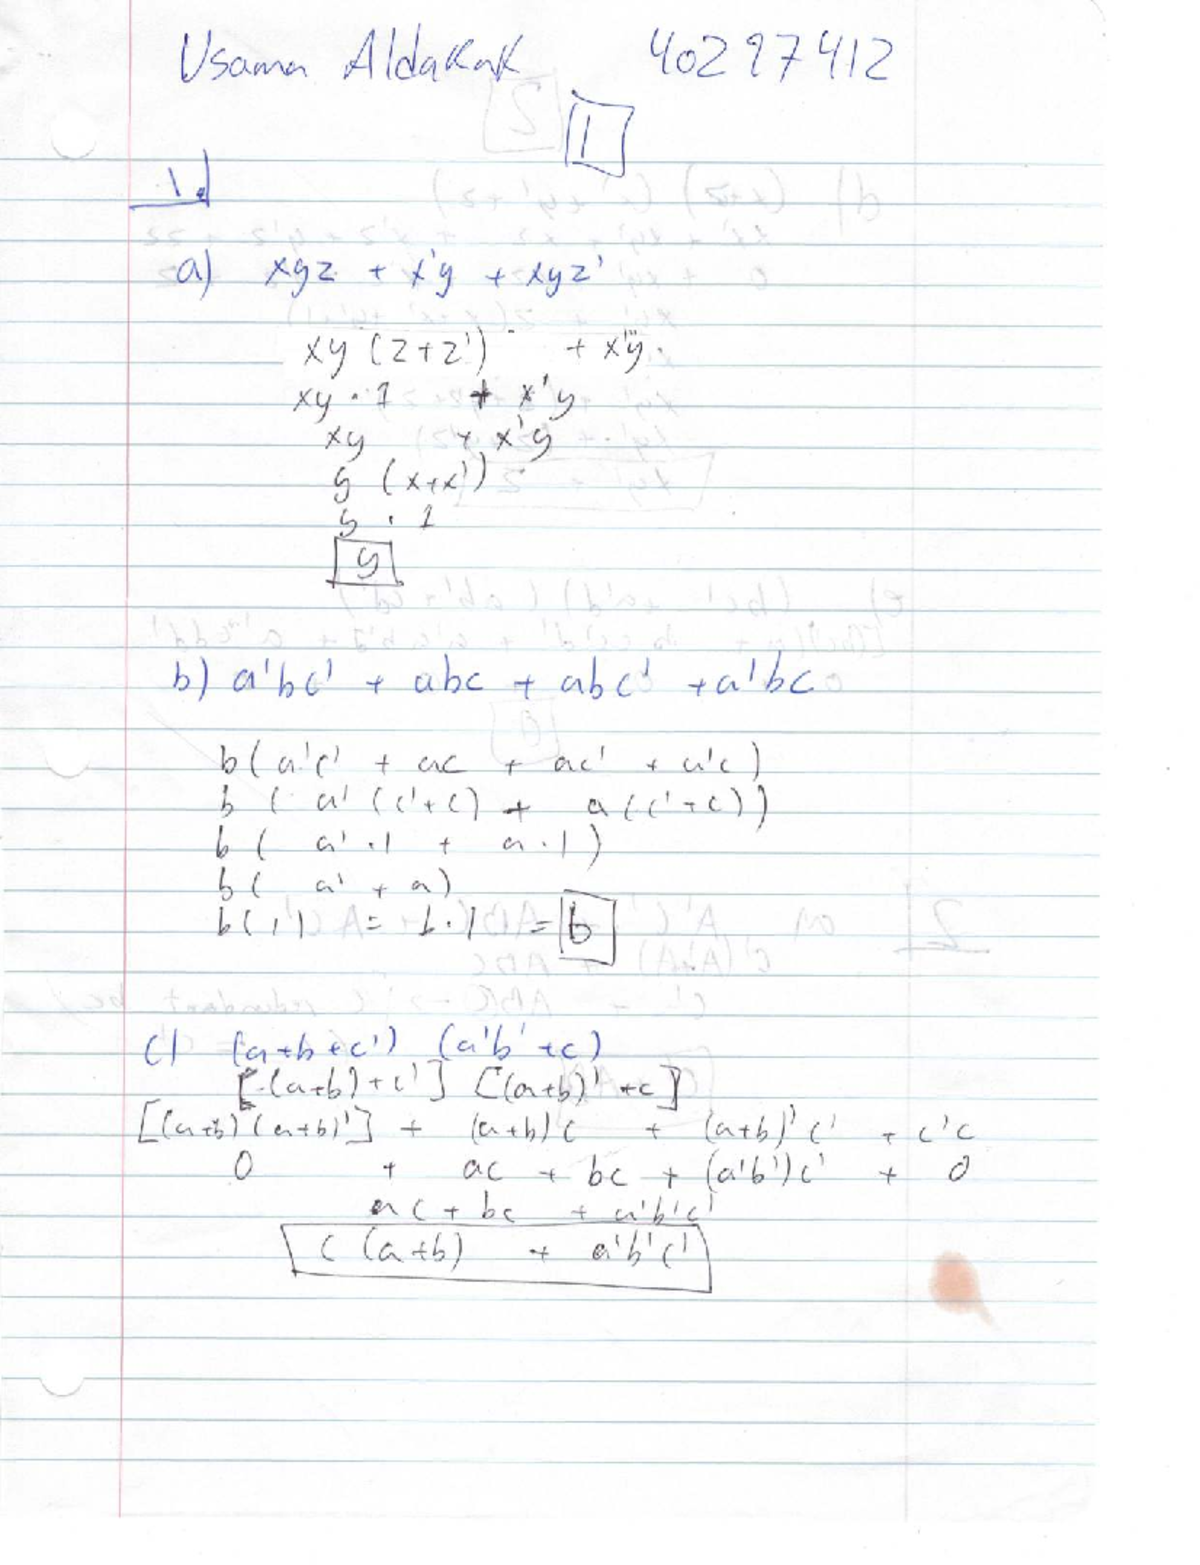 Usama Aldakak 40297412
1
1.
a) xyz + x'y + xyz'
xy (z+z') + x'y.
xy . 1 + x'y
xy + x'y
y (x+x')
y . 1
y
b) a'bc' + abc + abc' + a'bc
b(a'c' + ac + ac' + a'c)
b ( a' (c'+c) + a(c'+c))
b ( a' .1 + a.1)
b( a' + a)
b(1) = b.1 = b
c) (a+b+c') (a'b'+c)
[(a+b)+c'] [(a+b)'+c]
[(a+b)(a+b)'] + (a+b)c + (a+b)'c' + c'c
0 + ac + bc + (a'b')c' + 0
ac + bc + a'b'c'
c (a+b) + a'b'c'